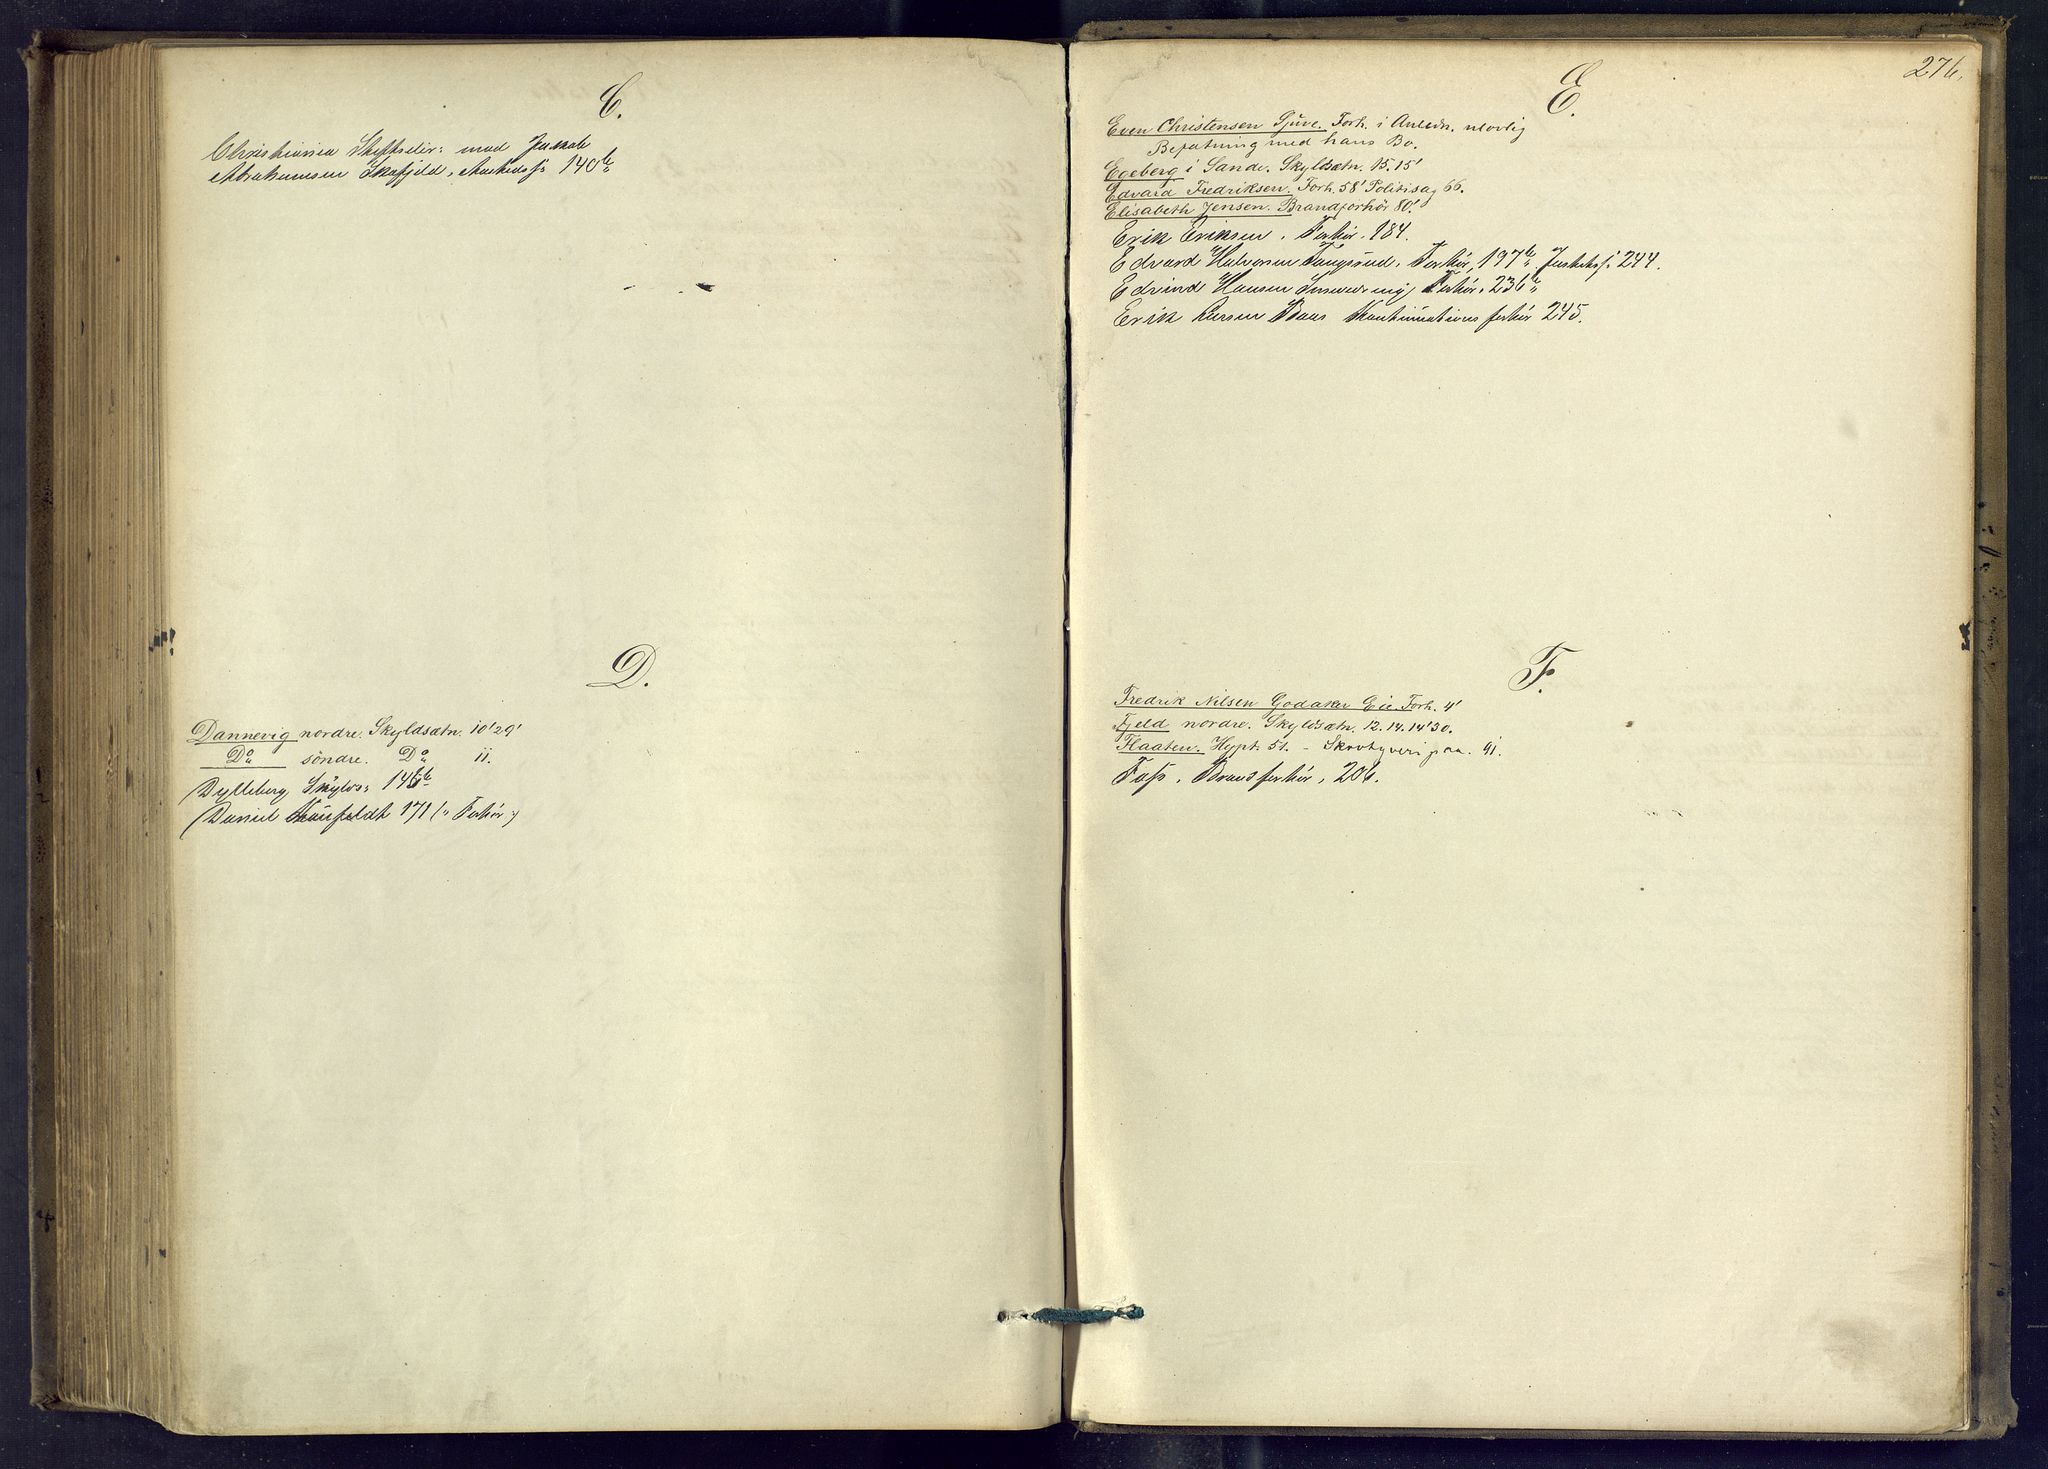 C.
Christiania Skiftselir: mod Jakob
Abrahamsen Skafjeld, Markedsf: 140b
D.
Dannevig nordre. Skyldsætn. 10' 29'
Do söndre. Do 11.
Dylleberg, Skylds: 146b
Daniel Haufeldt 171 (: Forhör :)
276.
E.
Even Christensen Gjuve. Forh. i Anledn. ulovlig
Befatning med hans Bo.
Egeberg i Sande. Skyldsætn. 15.15'
Edvard Fredriksen. Forh. 58' Politisag 66.
Elisabeth Jensen. Brandforhör 80'.
Erik Eriksen. Forhör. 184.
Edvard Halvorsen Tangsrud. Forhör, 197b, Justitss: 244.
Edvind Hansen Forhör. 236b
Erik Larsen Kontinuations forhör 245.
F.
Fredrik Nilsen Godaker Eie. Forh. 4'
Fjeld nordre. Skyldsætn. 12. 14. 14' 30.
Flaaten. Hypt. 51. - Skovtyveri paa. 91.
Fos. Brandforhör, 206.